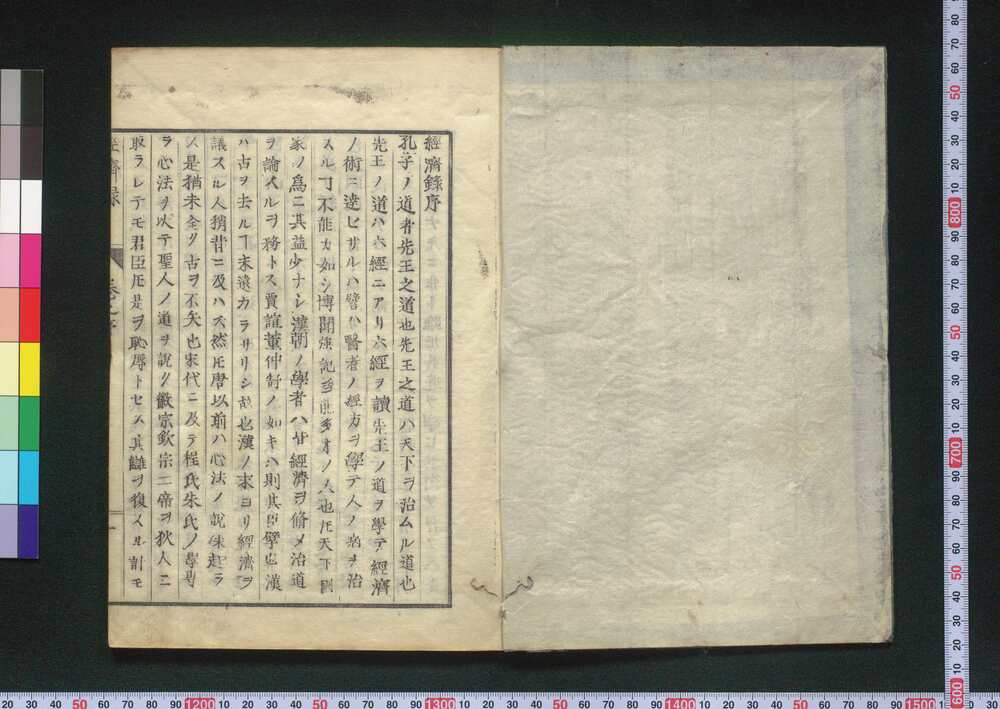 經濟錄序
孔子ノ道者先王之道也先王之道ハ天下ヲ治ムル道也
先王ノ道ハ六經ニアリ六經ヲ讀先王ノ道ヲ學テ經濟
ノ術ニ達セサルハ譬ハ醫者ノ經方ヲ學テ人ノ病ヲ治
スルヿ不能カ如シ博聞強記 能多才ノ人也𪜈天下國
家ノ爲ニ其益少ナシ漢朝ノ學者ハ 經濟ヲ脩メ治道
ヲ論スルヲ務トス賈誼董仲舒ノ如キハ則其 也漢
ハ古ヲ去ルヿ未遠カラサリシ故也漢ノ末ヨリ經濟ヲ
議スル人稍昔ニ及ハス然𪜈唐以前ハ心法ノ說未起ラ
ス是猶未全ク古ヲ不失也宋代ニ及テ程氏朱氏ノ學專
ラ心法ヲ以テ聖人ノ道ヲ說ク徽宗欽宗二帝ヲ狄人ニ
取ラレテモ君臣𪜈是ヲ恥辱トセス其讎ヲ復スル計モ
經濟錄
卷之
一